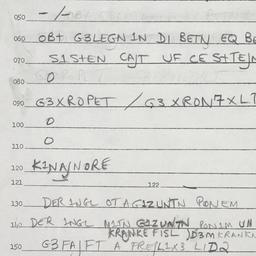 050 - /-
060 OBT G3LEGN 1N D1 BETN EQ BE
070 S1STEN CAJT UF CE STEJN
080 O
090 G3XROPET / G3 XRON7XLT
100 O
110 O
120 K1NAJNORE
121 122
130 DER 1NGL OT A G1ZUNTN PONEM
140 DER 1NGL M1TN G1ZUNTN PON1M UN
KRANKE FISL )D3M KRANKN
150 G3FAJFT A FREJL1X3 L1D2